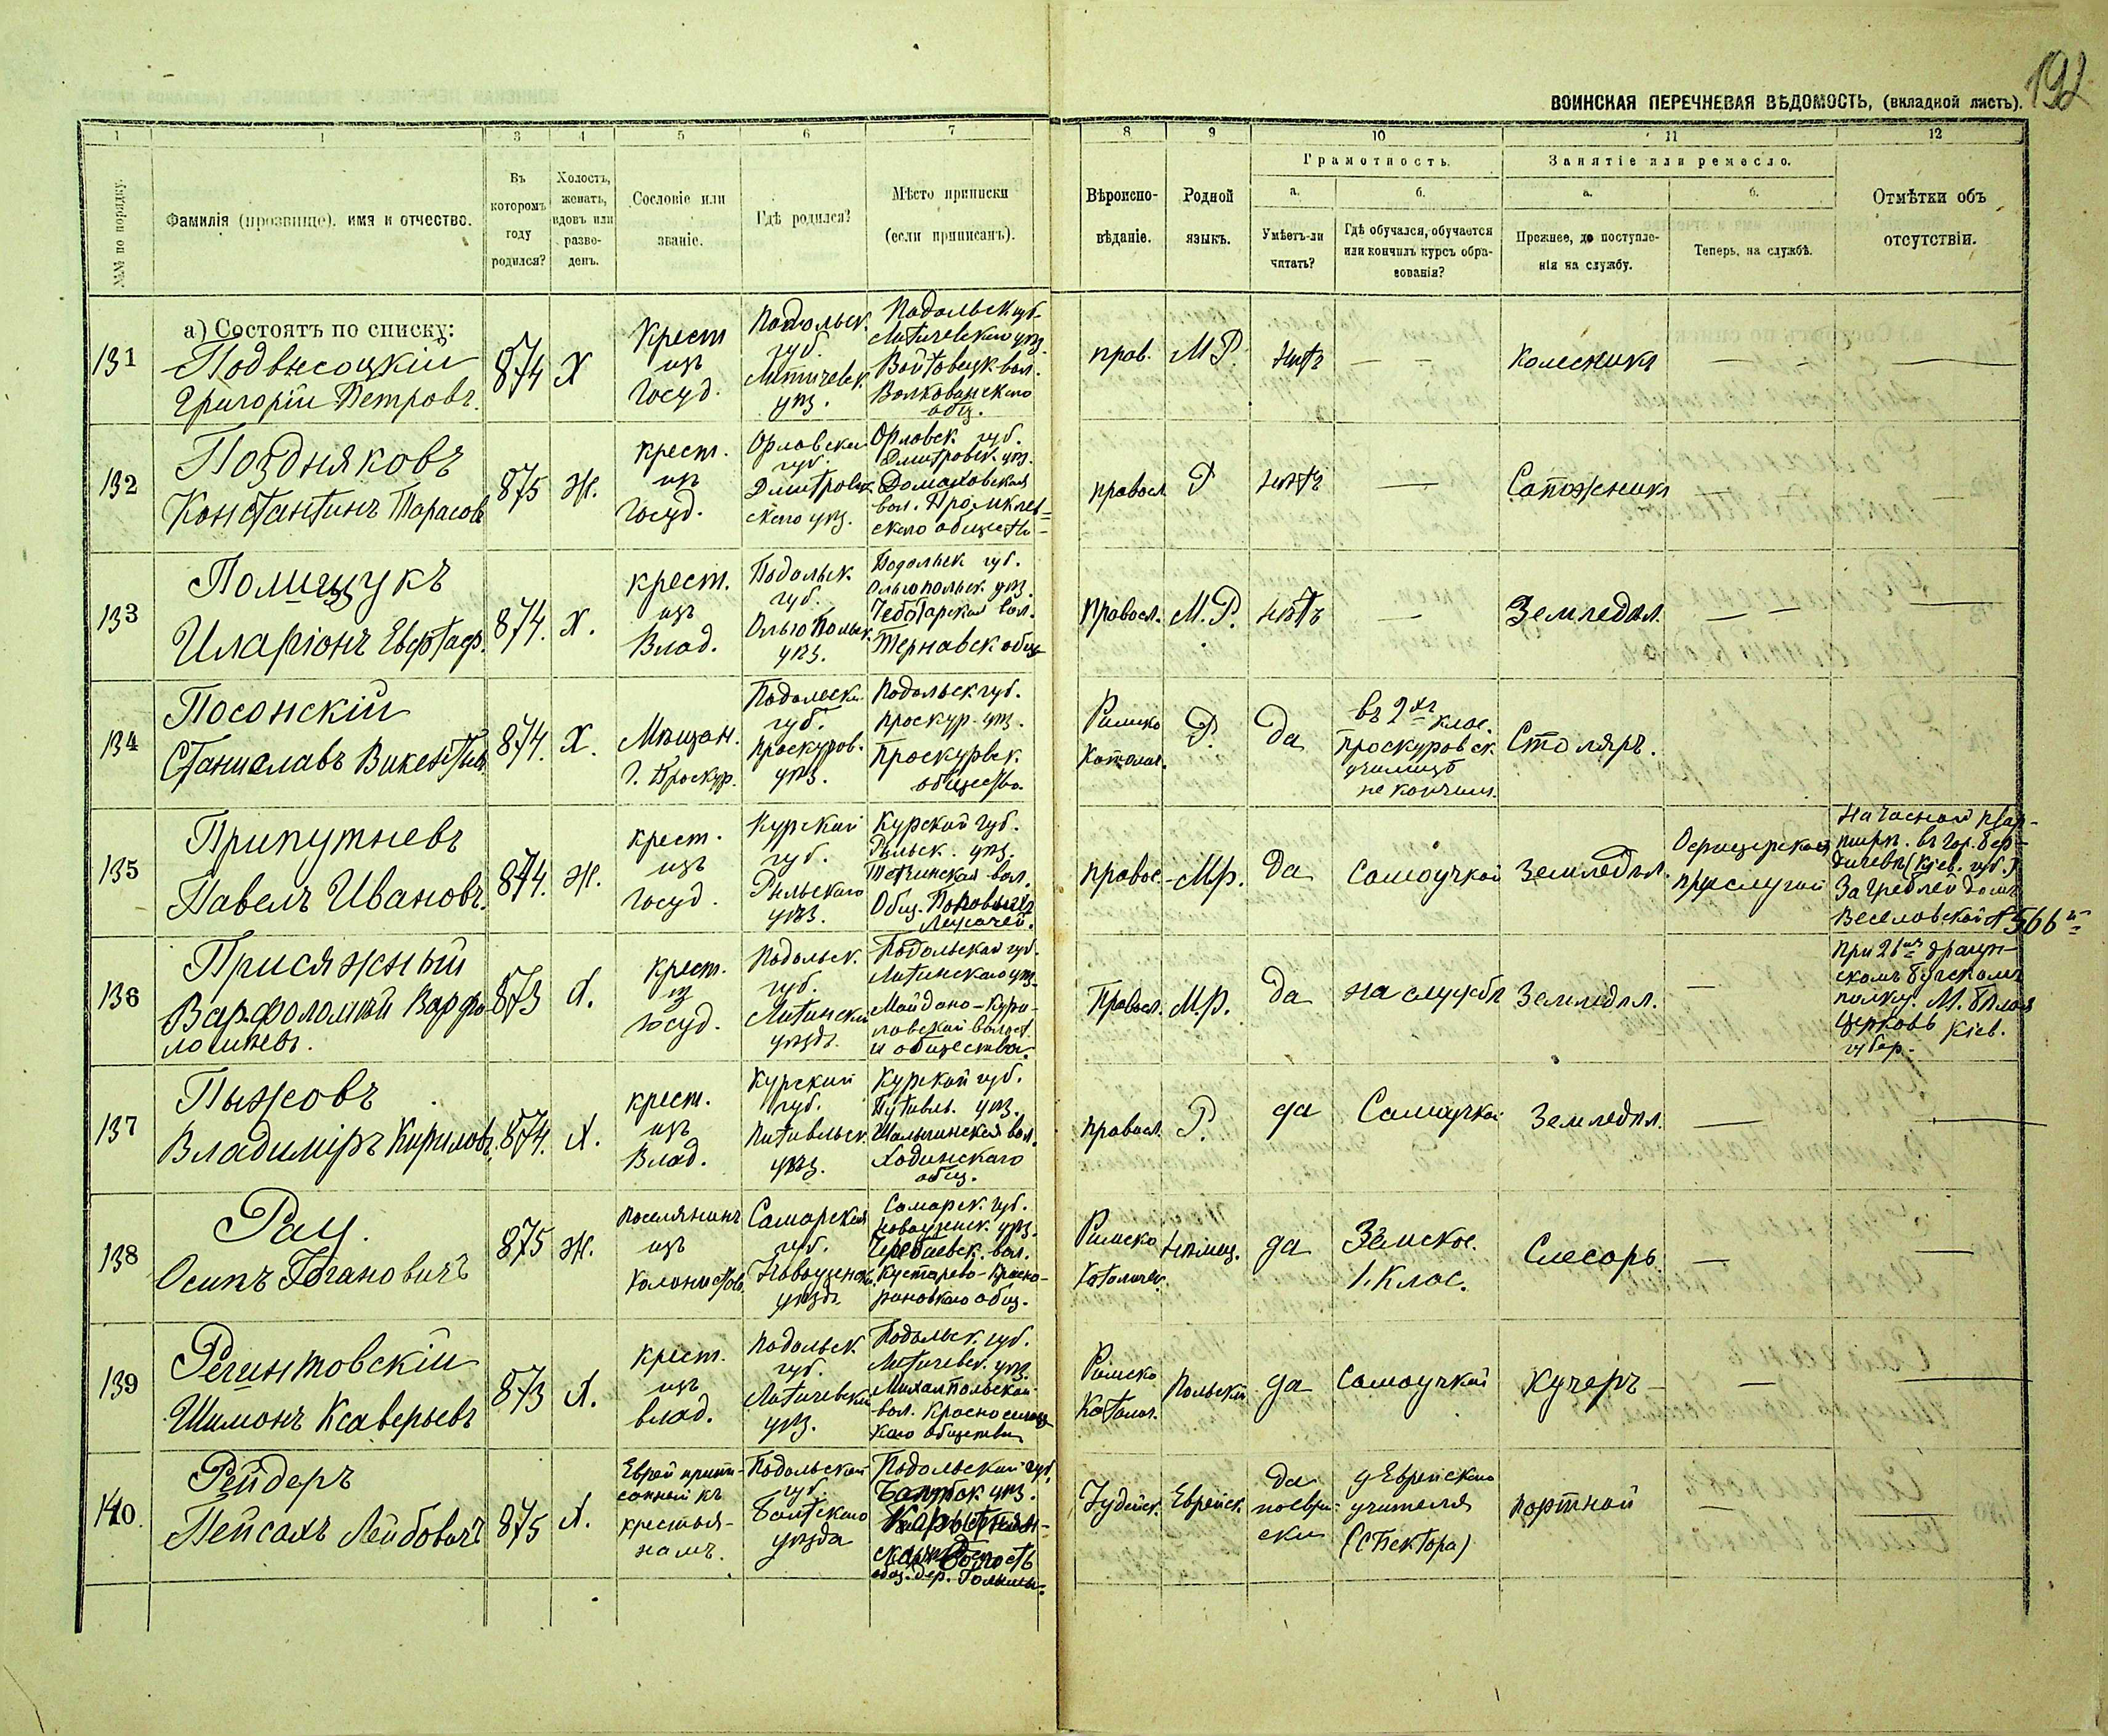 192
ВОИНСКАЯ ПЕРЕЧНЕВАЯ ВѢДОМОСТЬ, (вкладной листъ).
1 3 4 5 6 7 8 9 10 11 12
№№ по порядку.
Фамилія (прозвище), имя и отчество.
Въ которомъ году родился?
Холостъ, женатъ, вдовъ или разведенъ.
Сословіе или званіе.
Гдѣ родился?
Мѣсто приписки (если приписанъ).
Вѣроисповѣданіе.
Родной языкъ.
Грамотность.
а.
Умѣетъ-ли читать?
б.
Гдѣ обучался, обучается или кончилъ курсъ образованія?
Занятіе или ремесло.
а.
Прежнее, до поступленія на службу.
б.
Теперь, на службѣ.
Отмѣтки объ отсутствіи.
а) Состоятъ по списку:
131
Подвысоцкій
Григорій Петровъ.
874
Х
Крест
изъ
Госуд.
Подольск.
губ.
Литичевск.
уѣз.
Подольск губ.
Литичевскаго уѣз.
Войтовецк. вол.
Волкованскаго
общ.
прав.
М Р.
нѣтъ
— —
Колесникъ
— —
—
132
Поздняковъ
Константинъ Тарасов
875
Ж.
крест.
изъ
Госуд.
Орловской
губ.
Дмитровскаго уѣз.
Орловск. губ.
Дмитровск. уѣз.
Домаховская
вол.
скаго общество
правосл
Р
нѣтъ
—
Сапожникъ
—
133
Полищукъ
Иларіонъ Евстаф.
874.
Х.
крест.
изъ
Влад.
Подольск.
губ.
Ольгопольск.
уѣз.
Подольск губ.
Ольгопольск. уѣз.
Чеботарская вол.
Тернавск общ
Правосл.
М. Р.
нѣтъ
—
Земледѣл.
— —
—
134
Посонскій
Станиславъ Викентьев
874.
Х.
Мѣщан.
г. Проскур.
Подольск.
губ.
Проскуров.
уѣз.
Подольск губ.
проскур. уѣз.
Проскуровск.
общество.
Римско
Католич.
Р.
Да
въ 2хъ клас.
Проскуровск.
училище
не кончил.
Столяръ.
135
Припутневъ
Павелъ Ивановъ.
874.
Ж.
крест.
изъ
госуд.
Курской
губ.
Рыльскаго
уѣз.
Курской губ.
Рыльск. уѣз.
вол.
Общ. Поповыхъ
Лежачей.
правос.
М.р.
Да
Самоучкой
Земледѣл.
Офицерской
прислугой
На часной квар-
тирѣ. въ гор. Бер-
дичевѣ (Кіев. губ.)
За Греблей домъ
Веселовской № 566й
136
Присяжный
Варфоломѣй Варфо
ломѣевъ.
873
Х.
крест.
из
госуд.
Подольск.
губ.
Литинскій
уѣздъ.
Подольской губ.
Литинскаго уѣз.
Майдано-Кури-
ловской волост
и общества.
Правосл.
М.р.
Да
на службѣ
Земледѣл.
—
При 26мъ драгун-
скомъ Бугскомъ
полку. М. Бѣлая
Церковь Кіев.
губер.
137
Пыжовъ
Владиміръ Кириловъ.
874.
Х.
крест.
изъ
Влад.
Курской
губ.
Путивльск.
уѣз.
Курской губ.
Путивль. уѣз.
Шалыгинская вол.
Ходинскаго
общ.
правосл.
Р.
да
Самоучкой
Земледѣл.
—
—
138
Рац.
Осипъ Іогановичъ
875
Ж.
поселянинъ
изъ
Колонистов.
Самарская
губ.
Новоузенск.
уѣздъ
Самарск. губ.
Новоузенск. уѣз.
вол.
Кустарево-Красно-
рыновскаго общ.
Римско
Католичес.
нѣмец.
да
Земское.
1. Клас.
Слесарь
—
—
139
Регинтовскій
Шимонъ Ксаверьевъ
873
Х.
крест.
изъ
влад.
Подольск
губ.
Литичевскій
уѣз.
Подольск. губ.
Литичевск. уѣз.
Михалпольской
вол.
общества
Римско
Католич.
Польскій
да
Самоучкой
Кучеръ
—
—
140.
Рейдеръ
Пейсахъ Лейбовичъ
875
Х.
Еврей припи-
санный къ
крестья-
намъ.
Подольской
губ.
Балтскаго
уѣзда
Подольской губ.
Балтск уѣз.
волость
общ. дер. Гольмы.
Іудейск.
Еврейск.
да
поеврей-
ски
у Еврейскаго
учителя
(Спектора)
портной
—
—